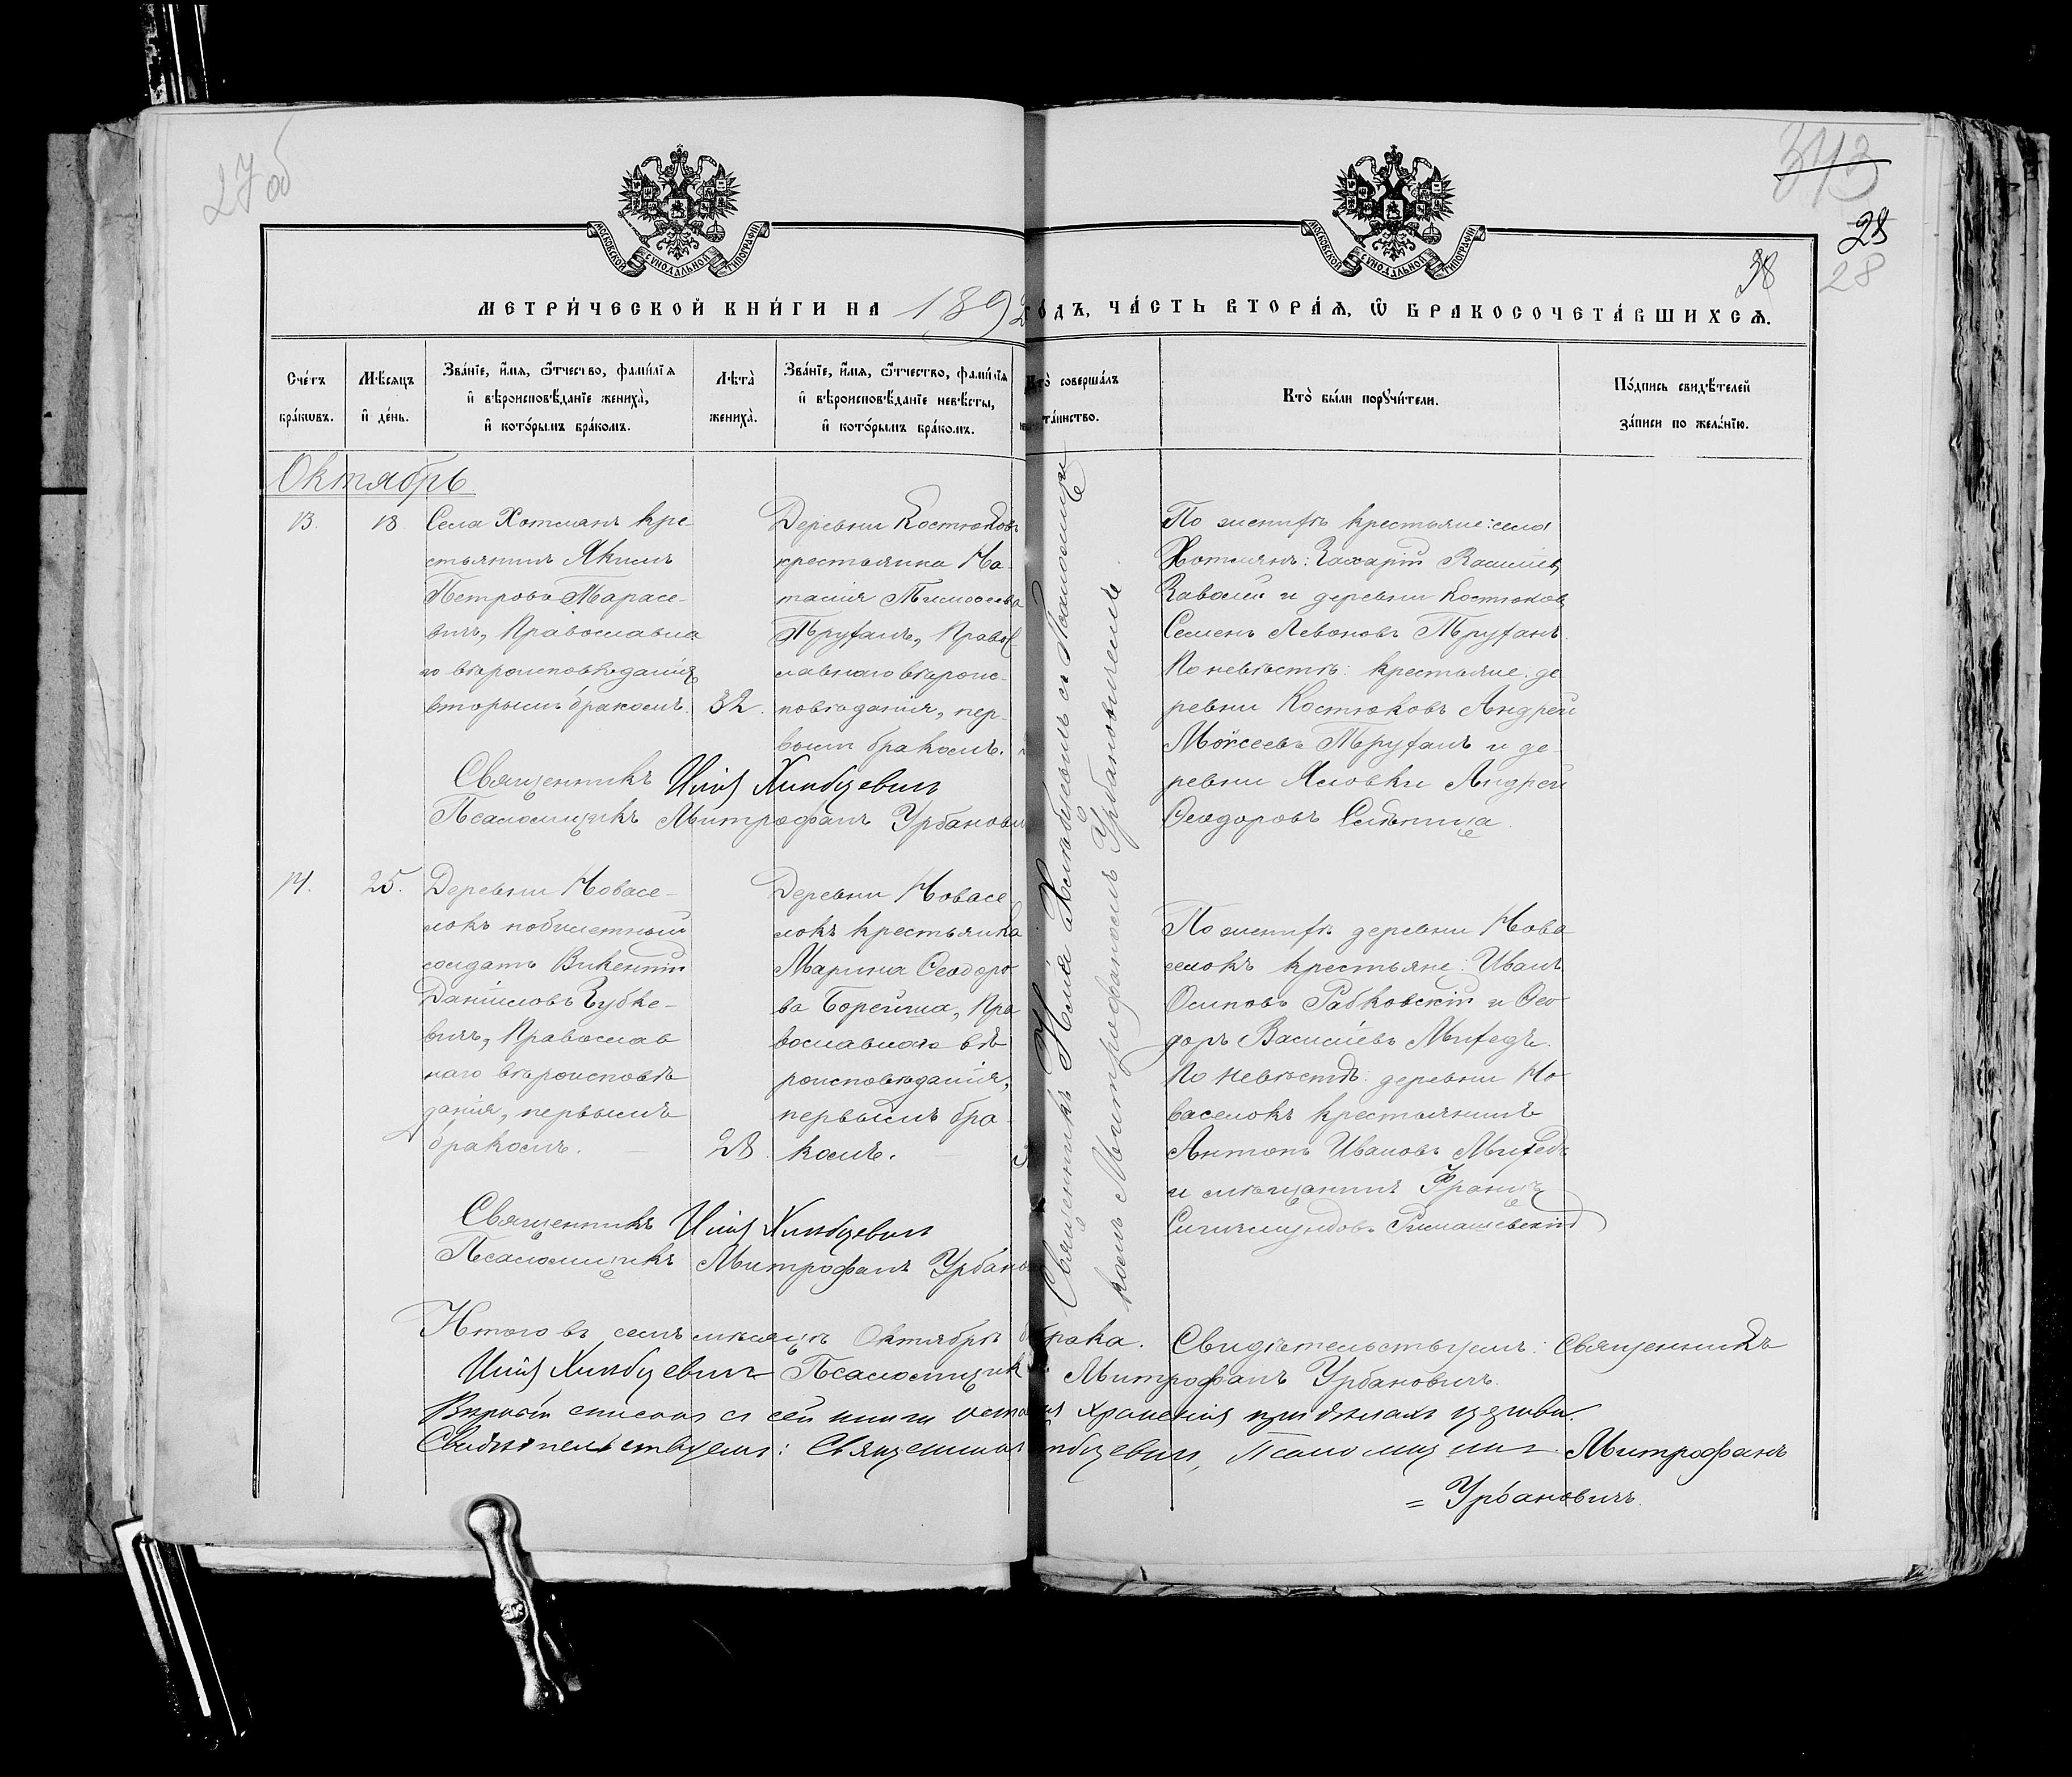 27об
343
28
28
38
МОСКОВСКОЙ СѴНОДАЛЬНОЙ ТИПОГРАФІИ
МОСКОВСКОЙ СѴНОДАЛЬНОЙ ТИПОГРАФІИ
МЕТРИ́ЧЕСКОЙ КНИ́ГИ НА 1892 ГО́ДЪ, ЧА́СТЬ ВТОРА́Я, Ѡ БРАКОСОЧЕТА́ВШИХСЯ.
Сче́тъ
бра́ковъ.
Мѣ́сяцъ
и҆ де́нь.
Зва́нїе, и҆́мя, ѻ҆́тчество, фами́лїя
и҆ вѣроисповѣ́данїе жениха̀,
и҆ кото́рымъ бра́комъ.
Лѣта̀
жениха̀.
Зва́нїе, и҆́мя, ѻ҆́тчество, фами́лїя
и҆ вѣроисповѣ́данїе невѣ́сты,
и҆ кото́рымъ бра́комъ.
Кто̀ соверша́лъ
та́инство.
Кто̀ бы́ли порꙋчи́тели.
По́дпись свидѣ́телей
за́писи по жела́нїю.
Октябрь
13.
18
Села Хотлянъ кре-
стьянинъ Якимъ
Петровъ Тарасе-
вичъ, Православна
го вѣроисповѣданія
вторымъ бракомъ.
32.
Деревни Костюковъ
крестьянка На-
талія Тимоѳеева
Труханъ, Правос-
лавнаго вѣроис-
повѣданія, пер-
вымъ бракомъ.
Священникъ Илія Хлѣбцевичъ
Псаломщикъ Митрофанъ Урбанович
По женихѣ крестьяне: села
Хотлянъ: Захарій
и деревни Костюковъ
Семенъ Левоновъ Труханъ
По невѣстѣ: крестьяне де
ревни Костюковъ Андрей
Моисеевъ Труханъ и де
ревни Андрей
Ѳеодоровъ
14.
25.
Деревни Новасе-
локъ побилетный
солдатъ Викентій
Даниловъ Зубке-
вичъ, Православ
наго вѣроисповѣ
данія, первымъ
бракомъ.
28.
Деревни Новасе
локъ крестьянка
Марина Ѳеодоро
ва Борейша, Пра
вославнаго вѣ
роисповѣданія,
первымъ бра-
комъ.
Священникъ Илія Хлѣбцевичъ
Псаломщикъ Митрофанъ Урбанов
По женихѣ деревни Нова
селокъ крестьяне: Иванъ
Осиповъ Рабковскій и Ѳео-
доръ Василіевъ Михедъ.
По невѣстѣ: деревни Но-
васелокъ крестьянинъ
Антонъ Ивановъ Михедъ
и мѣщанинъ Францъ
Сигизмундовъ Римашевскій
Священникъ Илія Хлѣбцевичъ съ Псаломщи
комъ Митрофаномъ Урбановичемъ.
Итого въ семъ мѣсяцѣ Октябрѣ брака. Свидѣтельствуемъ: Священникъ
Илія Хлѣбцевичъ Псаломщикъ Митрофанъ Урбановичъ.
Вѣрный списокъ съ сей книги храненія при дѣлахъ церкви.
Свидѣтельствуемъ: Священникъ Хлѣбцевичъ, Псаломщикъ Митрофанъ
= Урбановичъ.